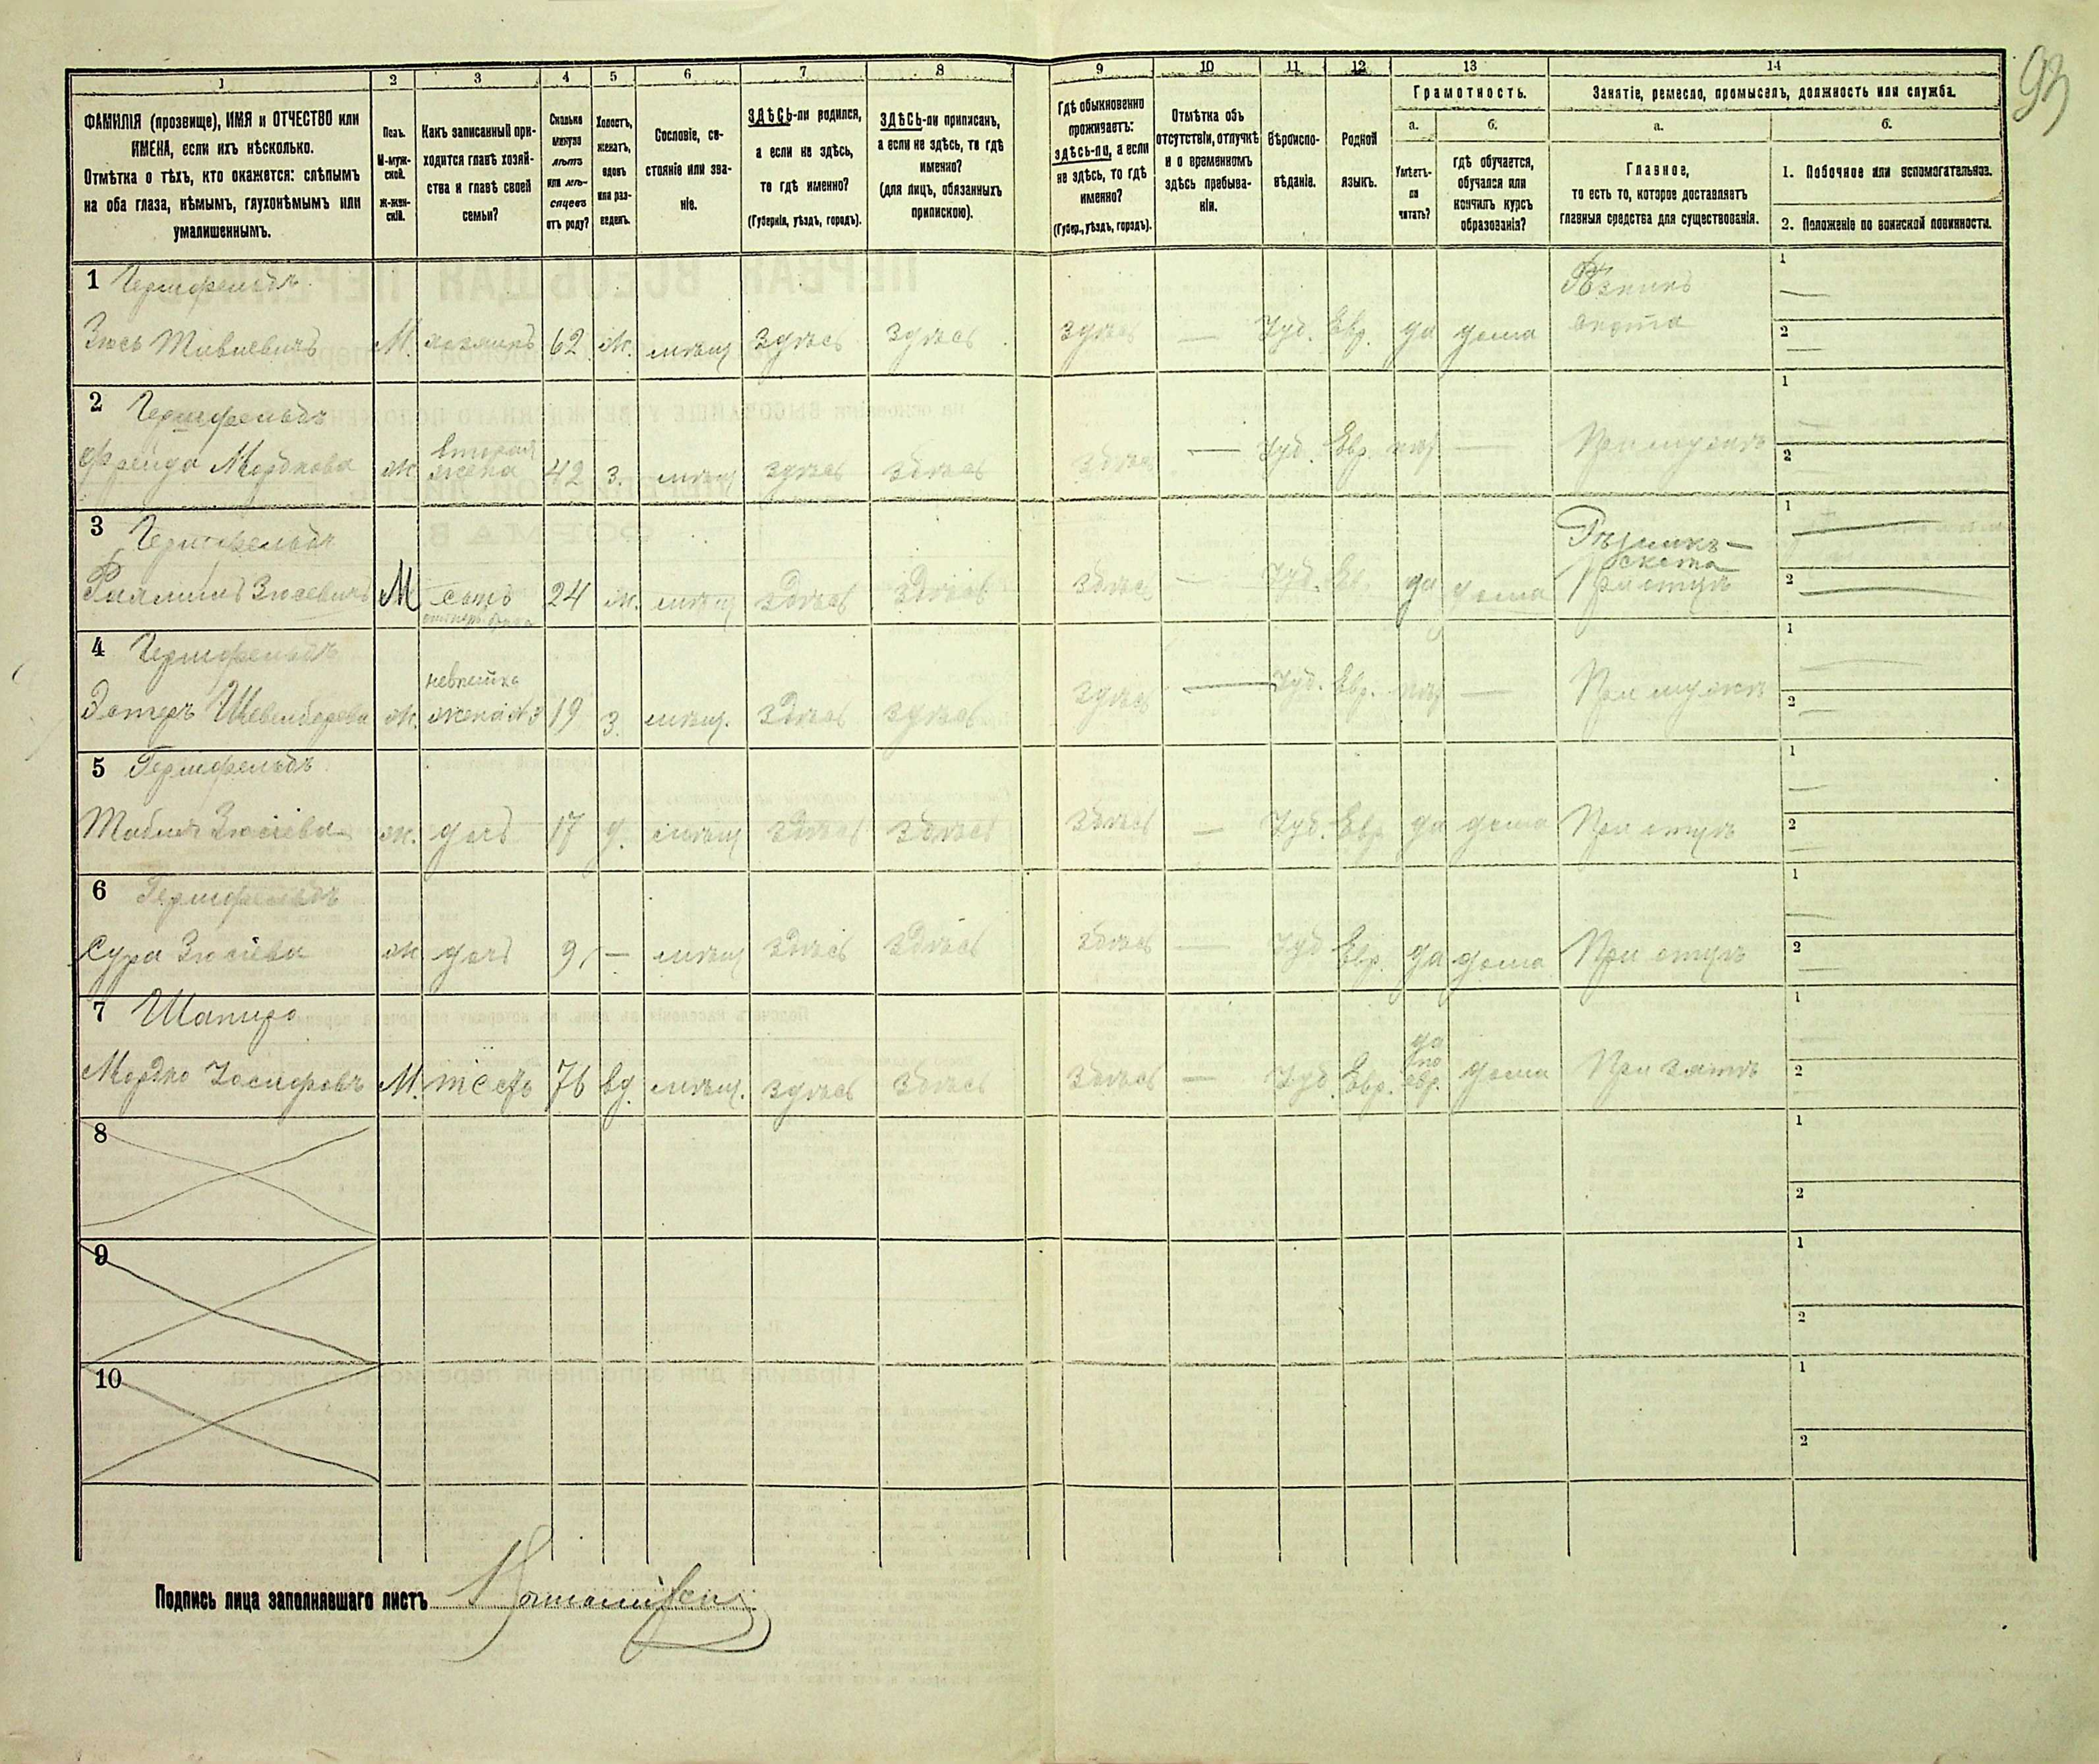 93
1 2 3 4 5 6 7 8 9 10 11 12 13 14
ФАМИЛІЯ (прозвище), ИМЯ и ОТЧЕСТВО или
ИМЕНА, если ихъ нѣсколько.
Отмѣтка о тѣхъ, кто окажется: слѣпымъ
на оба глаза, нѣмымъ, глухонѣмымъ или
умалишеннымъ.
Полъ.
М-муж-
ской.
Ж-жен-
скій.
Какъ записанный при-
ходится главѣ хозяй-
ства и главѣ своей
семьи?
Сколько
минуло
лѣтъ
или мѣ-
сяцевъ
отъ роду?
Холостъ,
женатъ,
вдовъ
или раз-
веденъ.
Сословіе, со-
стояніе или зва-
ніе.
ЗДѢСЬ-ли родился,
а если не здѣсь,
то гдѣ именно?
(Губернія, уѣздъ, городъ).
ЗДѢСЬ-ли приписанъ,
а если не здѣсь, то гдѣ
именно?
(для лицъ, обязанныхъ
припискою).
Гдѣ обыкновенно
проживаетъ:
здѣсь-ли, а если
не здѣсь, то гдѣ
именно?
(Губер., уѣздъ, городъ).
Отмѣтка объ
отсутствіи, отлучкѣ
и о временномъ
здѣсь пребыва-
ніи.
Вѣроиспо-
вѣданіе.
Родной
языкъ.
Грамотность.
а.
Умѣетъ-
ли
читать?
б.
гдѣ обучается,
обучался или
кончилъ курсъ
образованія?
Занятіе, ремесло, промыселъ, должность или служба.
а.
Главное,
то есть то, которое доставляетъ
главныя средства для существованія.
б.
1. Побочное или вспомогательное.
2. Положеніе по воинской повинности.
1 Гершфельдъ
Зюсь М. хозяинъ 62 ж. мѣщ здѣсь здѣсь здѣсь — Іуд. Евр. да дома
Рѣзникъ
скота
1
2
2 Гершфельдъ
Фрейда Мордкова ж вторая
жена 42 з. мѣщ здѣсь здѣсь здѣсь — Іуд. Евр. нѣт — При мужѣ
1
2
3 Гершфельдъ
Зюсевичъ М сынъ 24 ж. мѣщ здѣсь здѣсь здѣсь — Іуд. Ев. да дома
Рѣзникъ —
скота
При отцѣ
1
2
4 Гершфельдъ
невѣстка
Эстеръ ж. жена №3 19 з. мѣщ. здѣсь здѣсь здѣсь — Іуд. Евр. нѣт — При мужѣ
1
2
5 Гершфельдъ
Зюсіева ж. дочь 17 д. мѣщ здѣсь здѣсь здѣсь — Іуд. Евр да дома При отцѣ
1
2
6 Гершфельдъ
Сура Зюсіева ж дочь 9 — мѣщ здѣсь здѣсь здѣсь — Іуд Евр. да дома При отцѣ
1
2
7 Шапиро
Мордко Іосифовъ М. тесть 76 вд. мѣщ. здѣсь здѣсь здѣсь — Іуд. Евр. да
по
евр. дома При зятѣ
1
2
8
1
2
9
1
2
10
1
2
Подпись лица заполнявшаго листъ